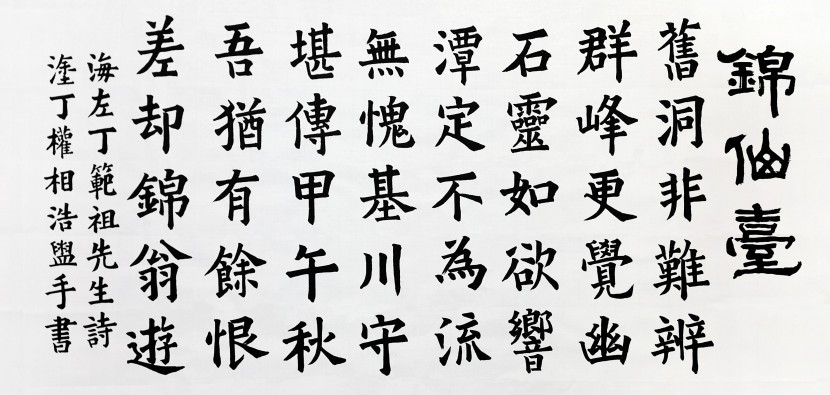 錦仙臺
舊洞非難辨
群峰更覺幽
石靈如欲響
潭定不為流
無愧基川守
堪傳甲午秋
吾猶有餘恨
差却錦翁遊
海左丁範祖先生詩
丁權相浩盥手書